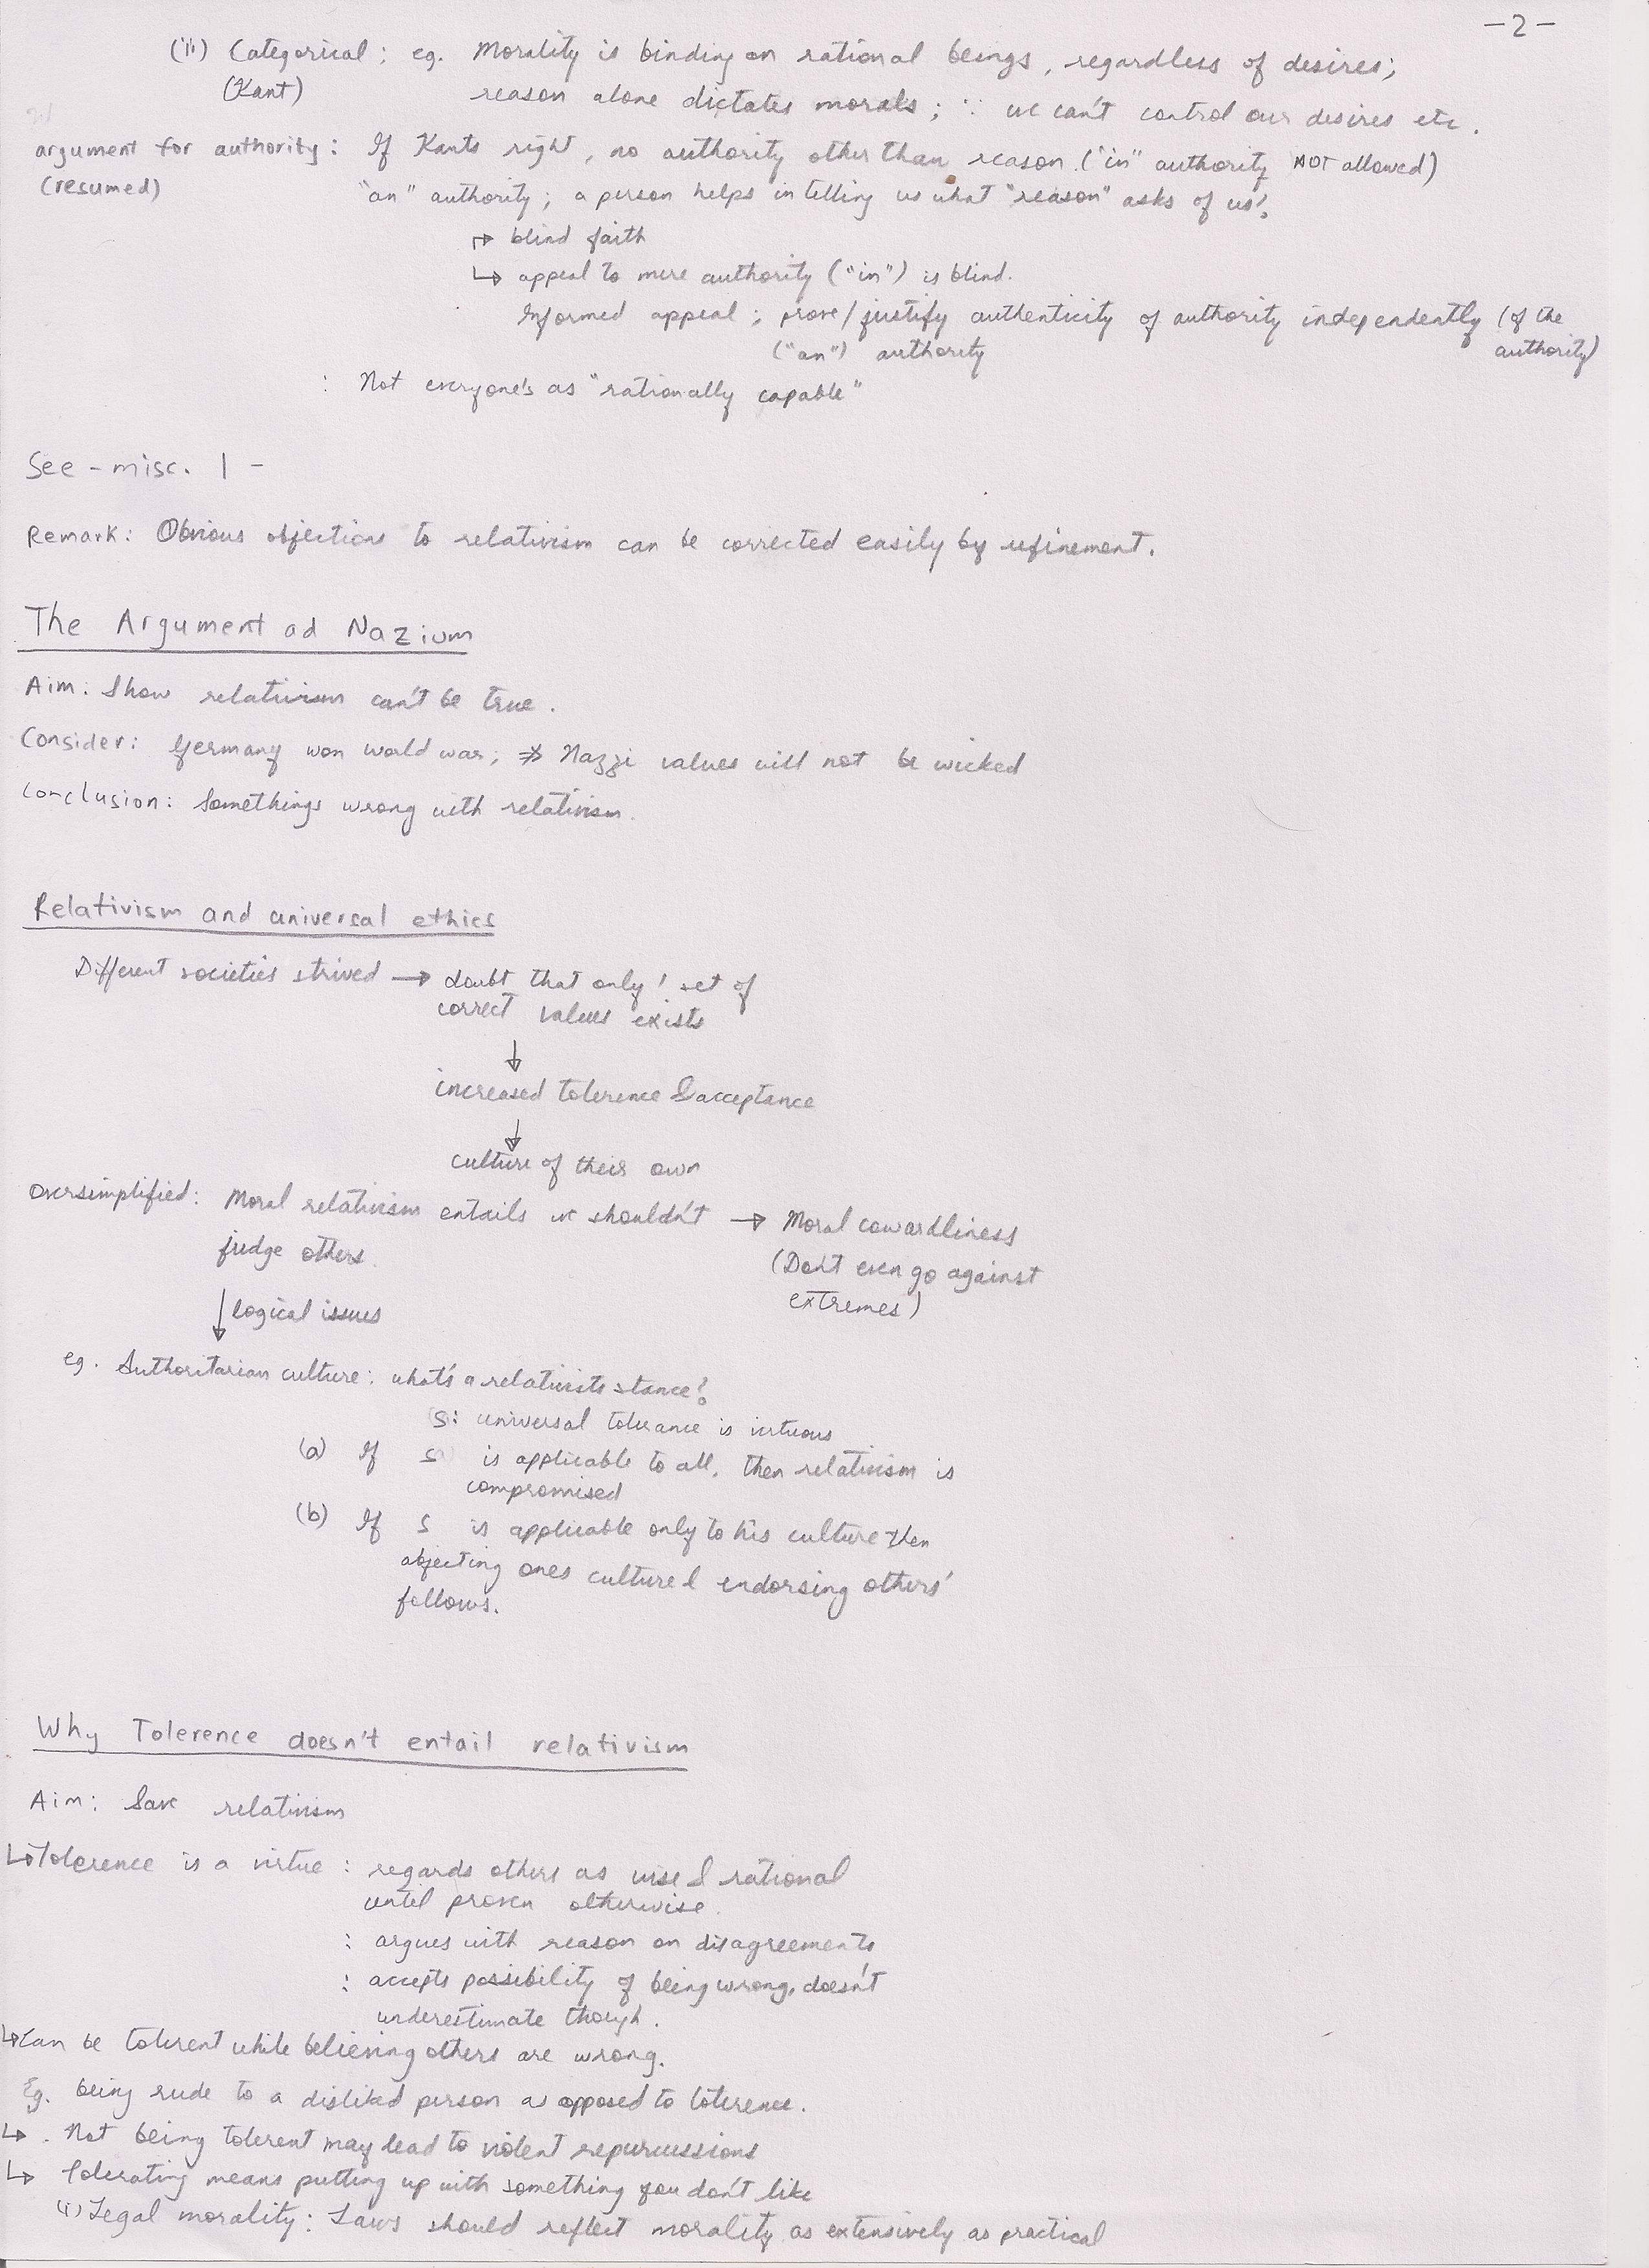 -2-
(ii) Categorical : eg. Morality is binding on rational beings, regardless of desires;
(Kant) reason alone dictates morals ; ∵ we can't control our desires etc.
argument for authority : If Kants right, no authority other than reason. ("in" authority NOT allowed)
(resumed) "an" authority ; a person helps in telling us what "reason" asks of us!
↱ blind faith
↳ appeal to mere authority ("in") is blind.
Informed appeal ; prove/justify authenticity of authority independently (of the
("an") authority authority)
: Not everyone's as "rationally capable"
See - misc. 1 -
Remark: Obvious objections to relativism can be corrected easily by refinement.
The Argument ad Nazium
Aim: Show relativism can't be true.
Consider: Germany won world war; ⇏ Nazzi values will not be wicked
Conclusion: Somethings wrong with relativism.
Relativism and universal ethics
Different societies strived → doubt that only 1 set of
correct values exists
↓
increased tolerence & acceptance
↓
culture of their own
Oversimplified: Moral relativism entails we shouldn't → Moral cowardliness
judge others. (Don't even go against
extremes)
↓ logical issues
eg. Authoritarian culture: what's a relativists stance?
S: universal tolerance is virtuous
(a) If S is applicable to all, then relativism is
compromised
(b) If S is applicable only to his culture then
objecting ones culture & endorsing others'
follows.
Why Tolerence doesn't entail relativism
Aim: Save relativism
↳ Tolerence is a virtue : regards others as wise & rational
until proven otherwise.
: argues with reason on disagreements
: accepts possibility of being wrong, doesn't
underestimate though.
↳ Can be tolerent while believing others are wrong.
Eg. being rude to a disliked person as opposed to tolerence.
↳ . Not being tolerent may lead to violent repurcussions
↳ Tolerating means putting up with something you don't like
(i) Legal morality: Laws should reflect morality as extensively as practical